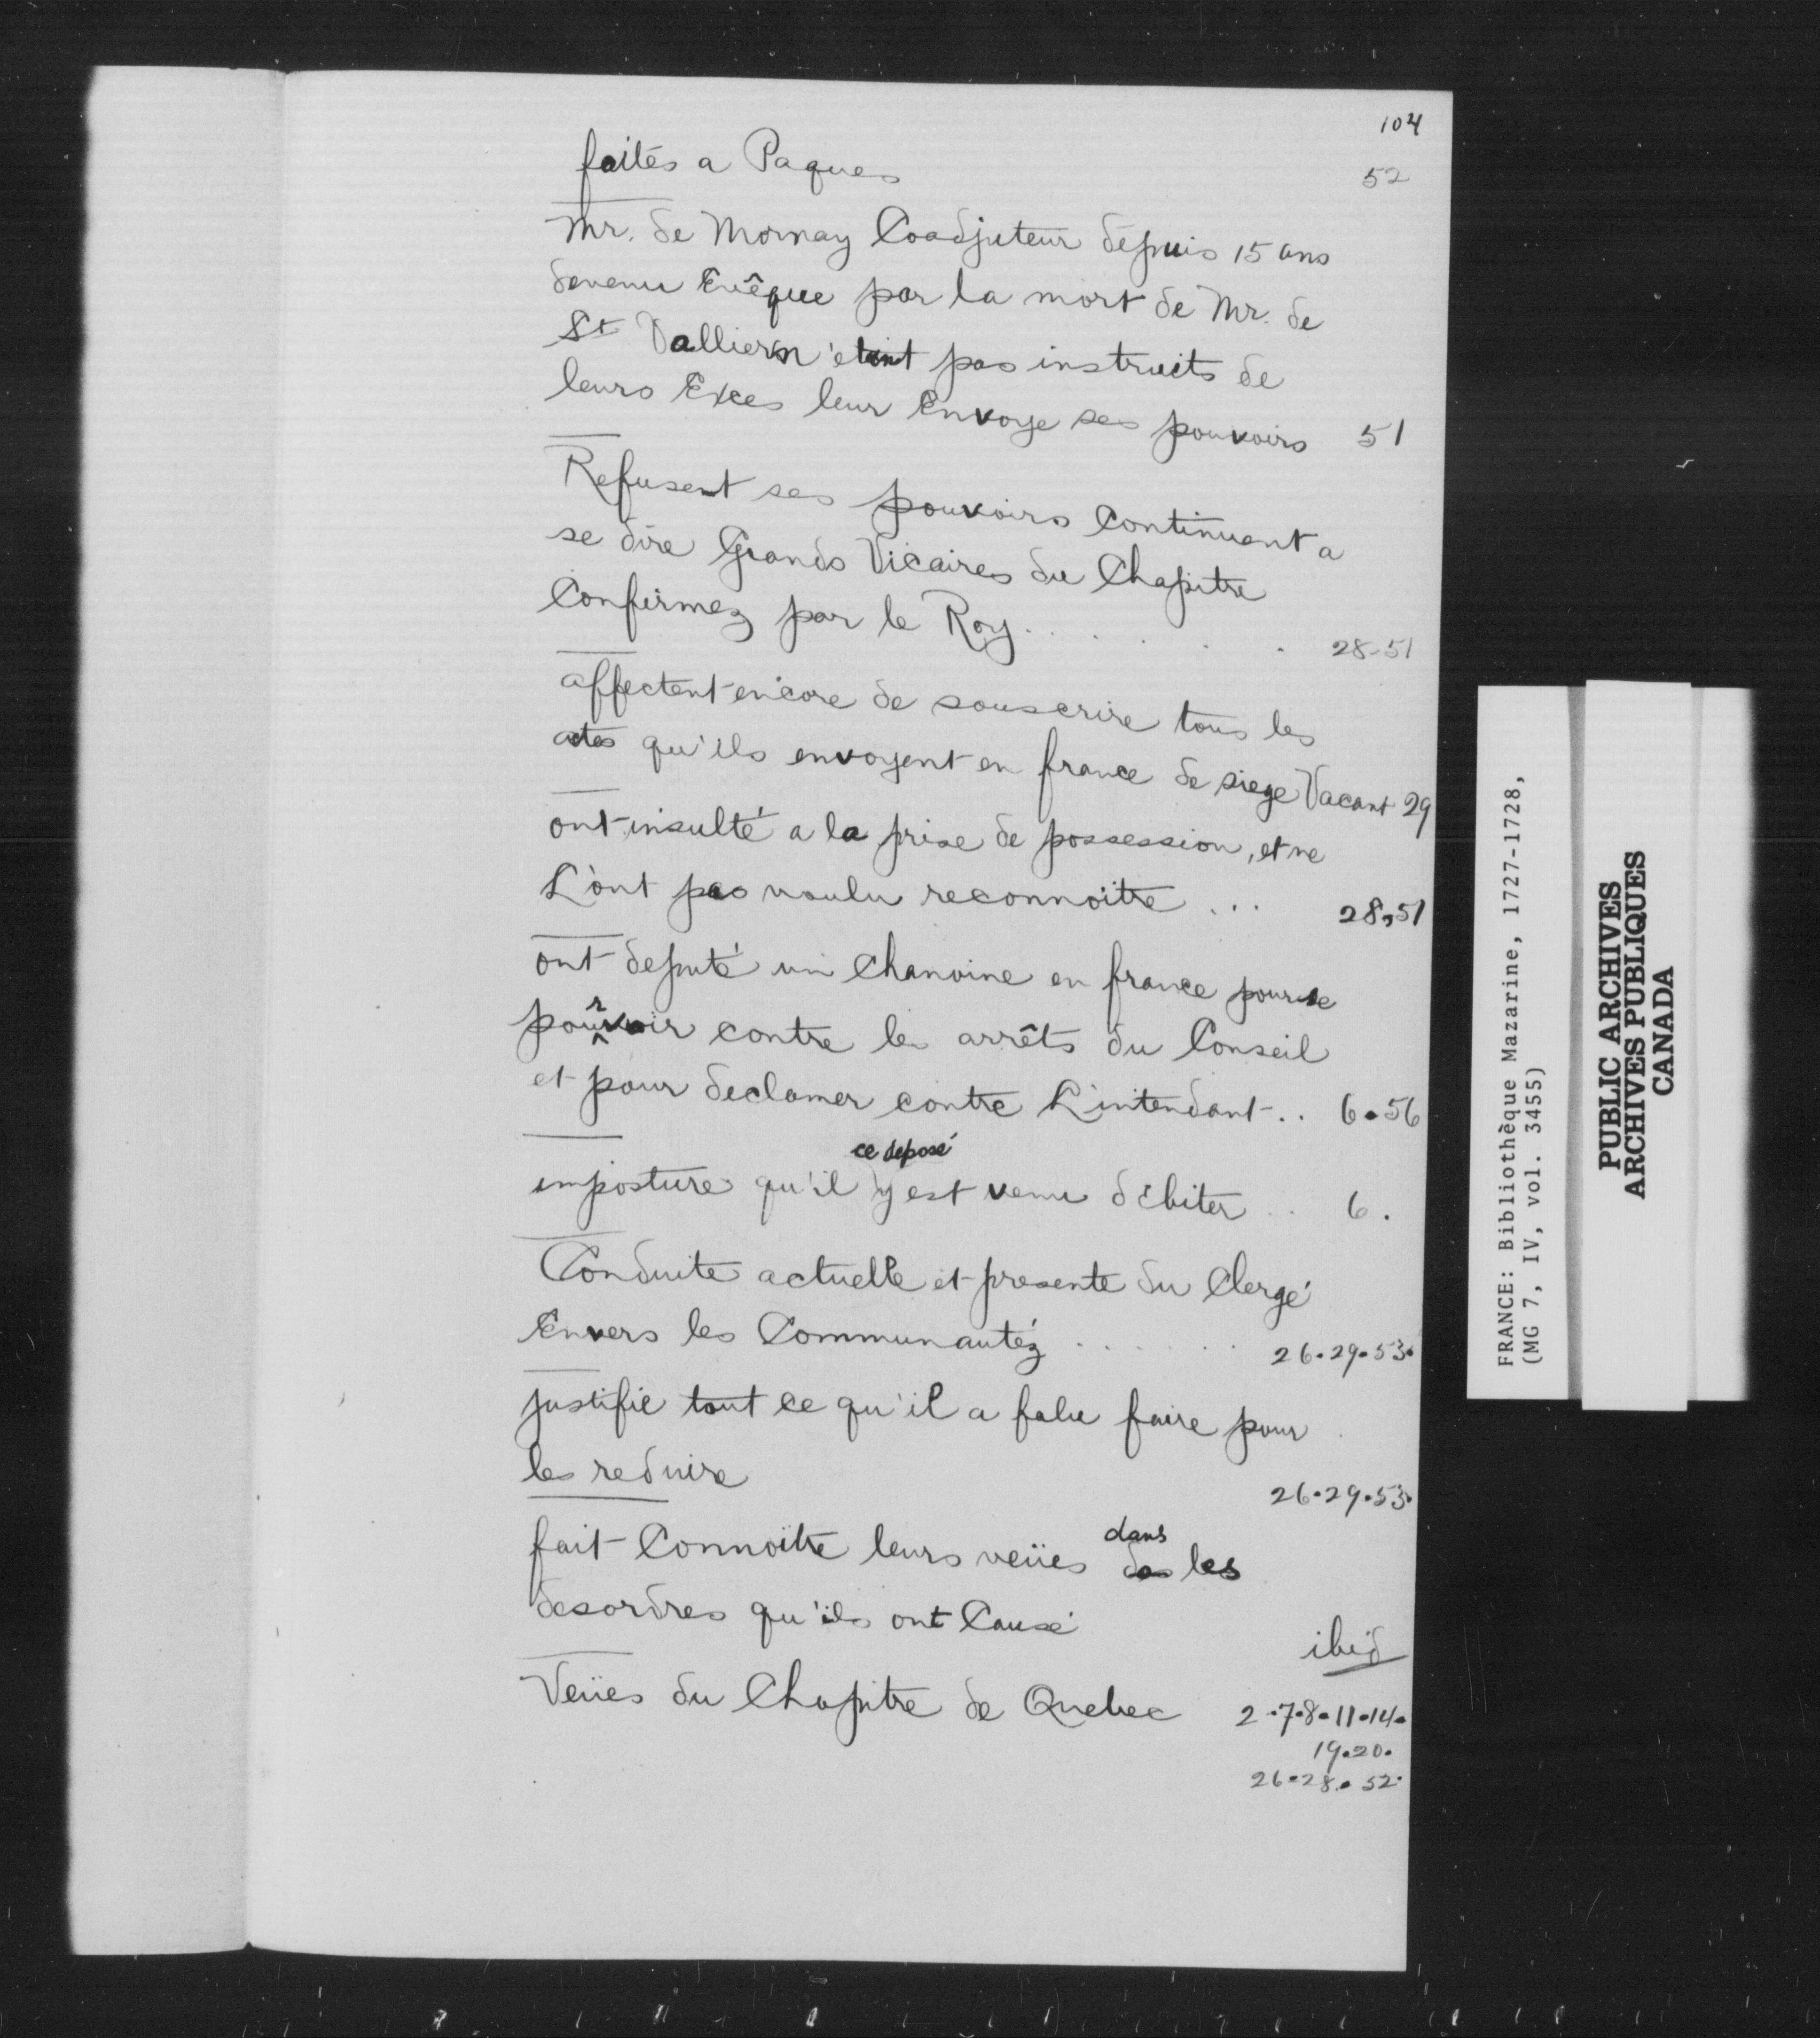 104
faites a Paques 52
Mr. de Mornay Coadjuteur depuis 15 ans
devenu Evêque par la mort de Mr. de
St Vallier n'etant pas instruits de
leurs Exces leur Envoye ses pouvoirs 51
Refusent ses pouvoirs Continuent a
se dire Grands Vicaires du Chapitre
Confirmez par le Roy . . . . . 28-51
affectent encore de souscrire tous les
actes qu'ils envoyent en france de siege Vacant 29
ont insulté a la prise de possession, et ne
L'ont pas voulu reconnoitre ... 28,51
ont deputé un Chanoine en france pour se
pourvoir contre les arrêts du Conseil
et pour declamer contre L'intendant .. 6.56
ce deposé
imposture qu'il y est venu débiter .. 6.
Conduite actuelle et presente du Clergé
Envers les Communautéz . . . . . . 26.29.53.
justifie tout ce qu'il a falu faire pour
les reduire 26.29.53.
dans
fait Connoitre leurs veües des les
desordres qu'ils ont Causé
ibid
Veües du Chapitre de Quebec 2.7.8.11.14.
19.20.
26.28.52.
FRANCE: Bibliothèque Mazarine, 1727-1728,
(MG 7, IV, vol. 3455)
PUBLIC ARCHIVES
ARCHIVES PUBLIQUES
CANADA